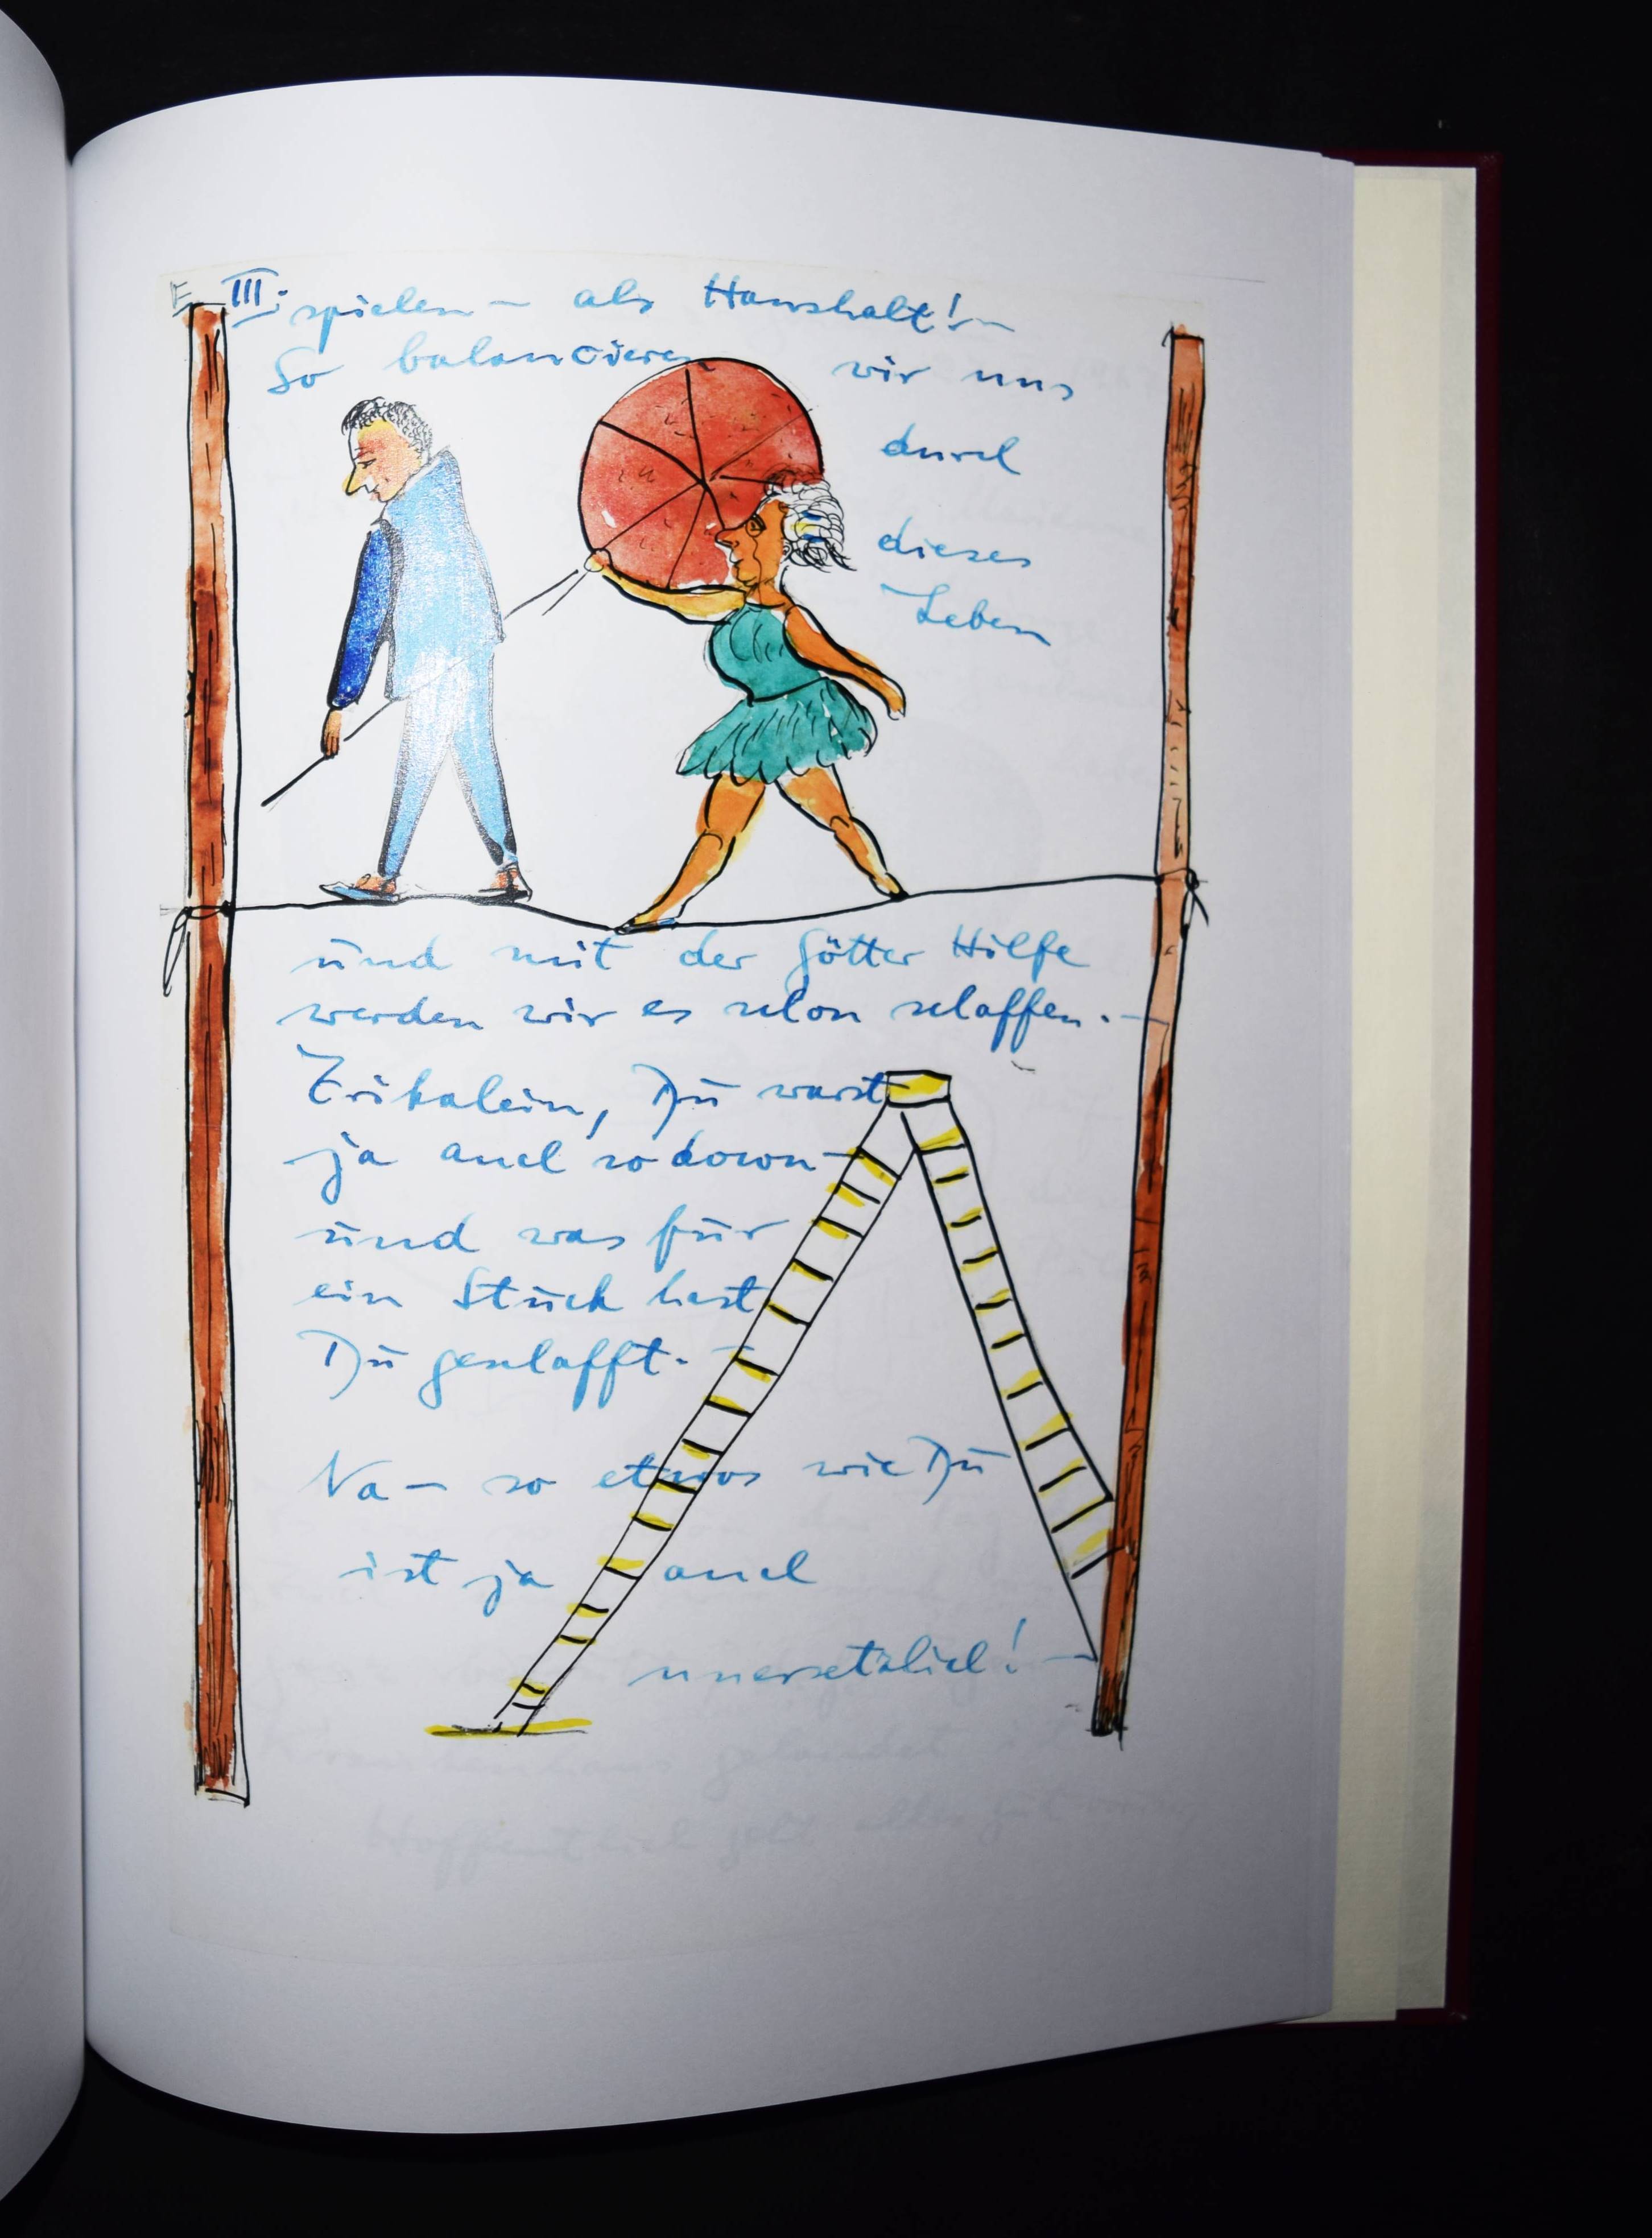 III. spielen – als Haushalt! –
So balancieren wir uns
durch
dieses
Leben
und mit der Götter Hilfe
werden wir es schon schaffen. –
Erikalein, Du warst
ja auch so down –
und was für
ein Stück hast
Du geschafft. –
Na – so etwas wie Du
ist ja auch
unersetzlich! –
Hoffentlich geht alles gut